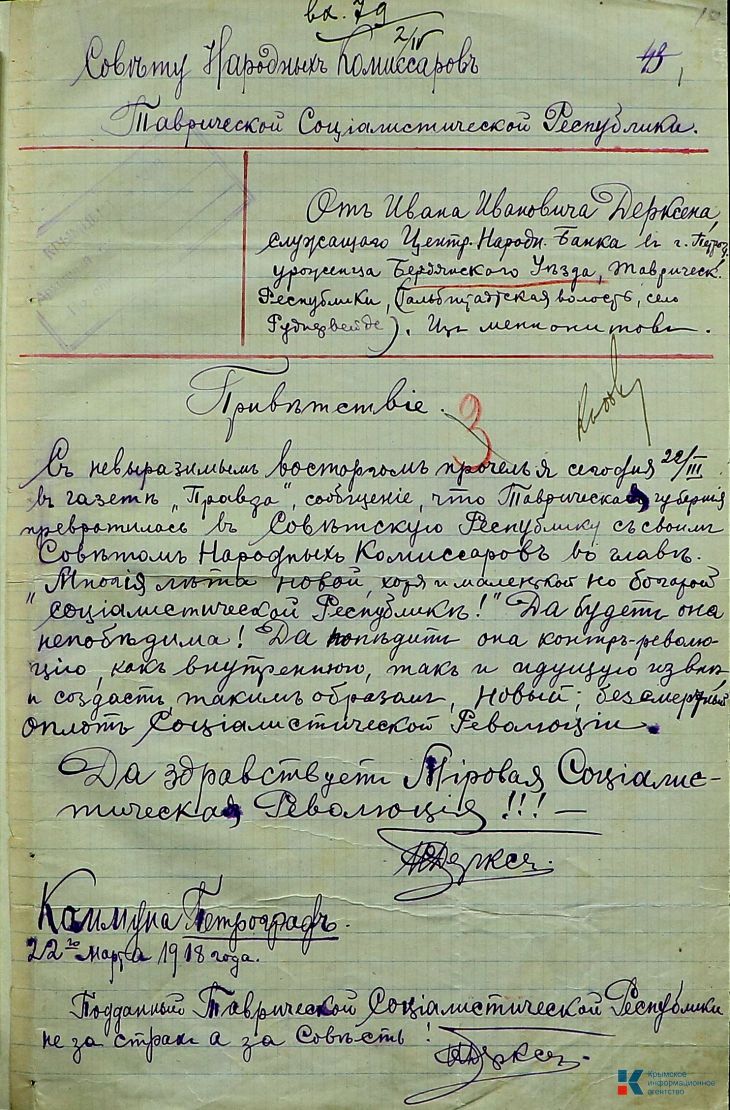 вх. 79
2/IV
Совѣту Народныхъ Комиссаровъ
43
Таврической Соціалистической Республики.
Отъ Ивана Ивановича Дерксена,
служащаго Центр. Народн. Банка въ г. Петрогр.,
уроженца Бердянскаго Уѣзда, Таврическ.
Республики, (Гальбштадтская волость, село
Руднервейде). Из менонитовъ.
Привѣтствіе.
3
Съ невыразимымъ восторгомъ прочелъ я сегодня 22/III
въ газетѣ „Правда", сообщеніе, что Таврическая губернія
превратилась въ Совѣтскую Республику съ своимъ
Совѣтомъ Народныхъ Комиссаровъ во главѣ.
„Многія лѣта новой, хотя и маленькой но богатой
соціалистической Республикѣ!" Да будетъ она
непобѣдима! Да побѣдитъ она контръ-револю-
цію, какъ внутреннюю, такъ и идущую извнѣ
и создастъ, такимъ образомъ, новый, безсмертный
оплотъ Соціалистической Революціи.
Да здравствуетъ Міровая Соціалис-
тическая Революція!!! —
ИДерксенъ.
Коммуна Петроградъ.
22го марта 1918 года.
Подданный Таврической Соціалистической Республики
не за страхъ а за Совѣсть!
ИДерксенъ.
Крымское
информационное
агентство